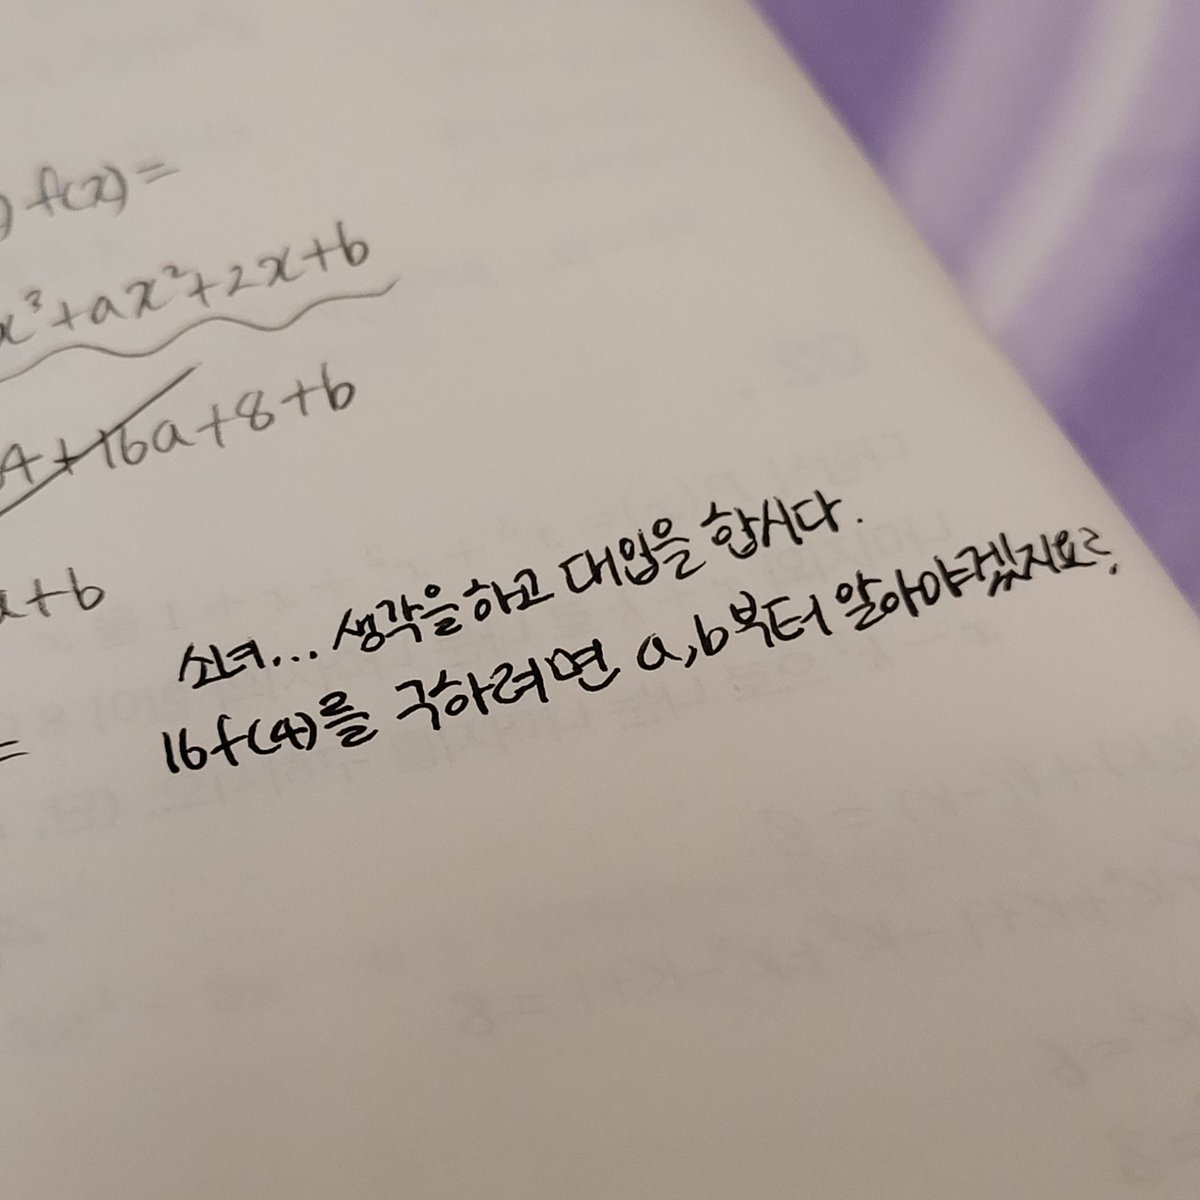 ) f(x)=
x³+ax²+2x+b
4+16a+8+b
a+b
소녀... 생각을하고 대입을 합시다.
=
16f(4)를 구하려면 a,b부터 알아야겠지요?